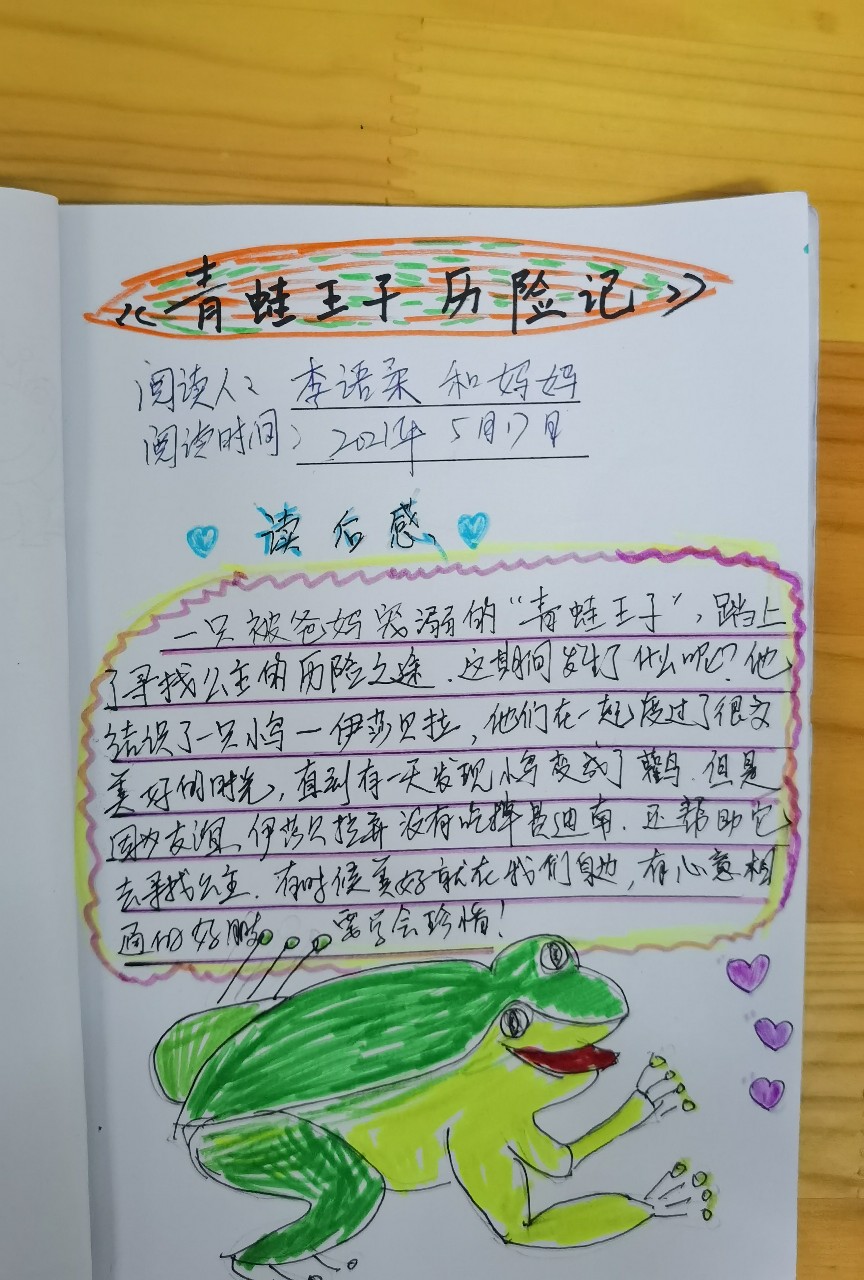 《青蛙王子历险记》
阅读人：李语柔 和妈妈
阅读时间：2021年5月17日
读后感
一只被爸妈宠溺的“青蛙王子”，踏上
了寻找公主的历险之途．这期间发生了什么呢？他
结识了一只小鸟一伊莎贝拉，他们在一起度过了很多
美好的时光，直到有一天发现小鸟变成了鹳鸟．但是
因为友谊，伊莎贝拉并没有吃掉费迪南．还帮助它
去寻找公主．有时候美好就在我们身边，有心意相
通的好朋 要学会珍惜！